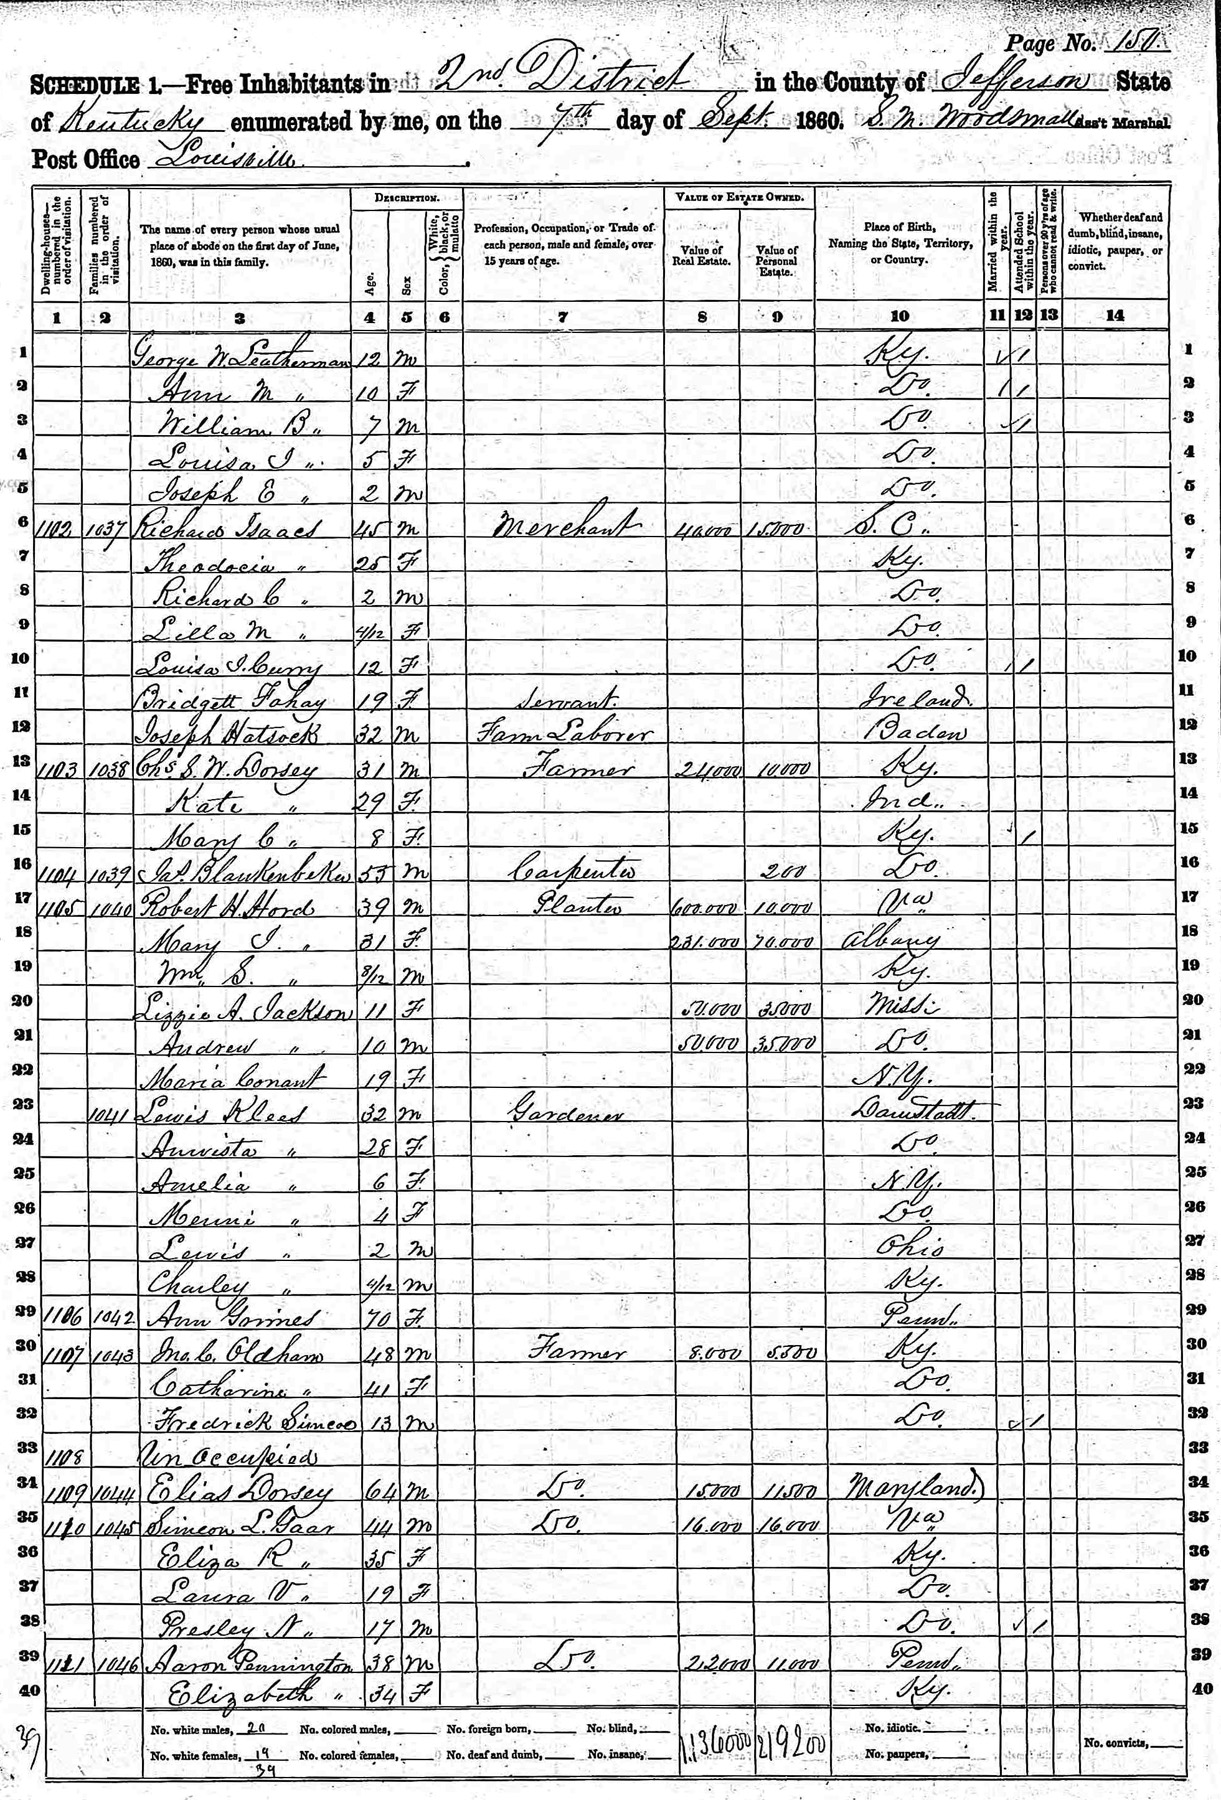 Page No. 150.
SCHEDULE 1.—Free Inhabitants in 2nd. District in the County of Jefferson State
of Kentucky enumerated by me, on the 7th day of Sept. 1860. S. M. Ass't Marshal
Post Office Louisville.
Dwelling-houses—numbered in the order of visitation.
Families numbered in the order of visitation.
The name of every person whose usual place of abode on the first day of June, 1860, was in this family.
DESCRIPTION.
Age.
Sex
Color, White, black, or mulatto
Profession, Occupation, or Trade of each person, male and female, over 15 years of age.
VALUE OF ESTATE OWNED.
Value of Real Estate.
Value of Personal Estate.
Place of Birth, Naming the State, Territory, or Country.
Married within the year.
Attended School within the year.
Persons over 20 y'rs of age who cannot read & write.
Whether deaf and dumb, blind, insane, idiotic, pauper, or convict.
1 2 3 4 5 6 7 8 9 10 11 12 13 14
1 George W. Leatherman 12 m Ky. 1 1
2 Ann M " 10 F Do. 1 2
3 William B " 7 m Do. 1 3
4 Louisa J " 5 F Do. 4
5 Joseph E " 2 m Do. 5
6 1102 1037 Richard Isaacs 45 m Merchant 40000 15.000 S. C. 6
7 Theodocia " 25 F Ky. 7
8 Richard C " 2 m Do. 8
9 Lilla M " 4/12 F Do. 9
10 Louisa J. Curry 12 F Do. 1 10
11 Bridgett Fahay 19 F. Servant. Ireland. 11
12 Joseph Hatsock 32 m Farm Laborer Baden 12
13 1103 1038 Chs S. W. Dorsey 31 m Farmer 24000 10.000 Ky. 13
14 Kate " 29 F. Ind. 14
15 Mary C " 8 F. Ky. 1 15
16 1104 1039 Jas. Blankenbeker 55 m Carpenter 200 Do. 16
17 1105 1040 Robert H. Hord 39 m Planter 600.000 10.000 Va 17
18 Mary J. " 31 F. 231.000 70.000 Albany 18
19 Wm. S. " 8/12 m Ky. 19
20 Lizzie A. Jackson 11 F 50.000 35000 Missi 20
21 Andrew " 10 m 50.000 35.000 Do. 21
22 Maria Conant 19 F N.Y. 22
23 1041 Lewis Klees 32 m Gardener Damstadt. 23
24 " 28 F Do. 24
25 Amelia " 6 F. N.Y. 25
26 Menni " 4 F Do. 26
27 Lewis " 2 m Ohio 27
28 Charley " 4/12 m Ky. 28
29 1106 1042 Ann Gorines 70 F. Penn. 29
30 1107 1043 Jno. C. Oldham 48 m Farmer 8.000 5.500 Ky. 30
31 Catharine " 41 F Do. 31
32 Fredrick 13 m Do. 1 32
33 1108 Un Occupied 33
34 1109 1044 Elias Dorsey 64 m Do. 15000 11500 Maryland. 34
35 1110 1045 Simeon L. Gaar 44 m Do. 16.000 16.000 Va 35
36 Eliza R " 35 F Ky. 36
37 Laura V " 19 F Do. 37
38 Presley N " 17 m Do. 1 38
39 1111 1046 Aaron Pennington 38 m Do. 22000 11000 Penn. 39
40 Elizabeth " 34 F Ky. 40
No. white males, 20 No. colored males, No. foreign born, No. blind, 1.136000 219200 No. idiotic.
No. white females, 19 No. colored females, No. deaf and dumb, No. insane, No. paupers, No. convicts,
39
39